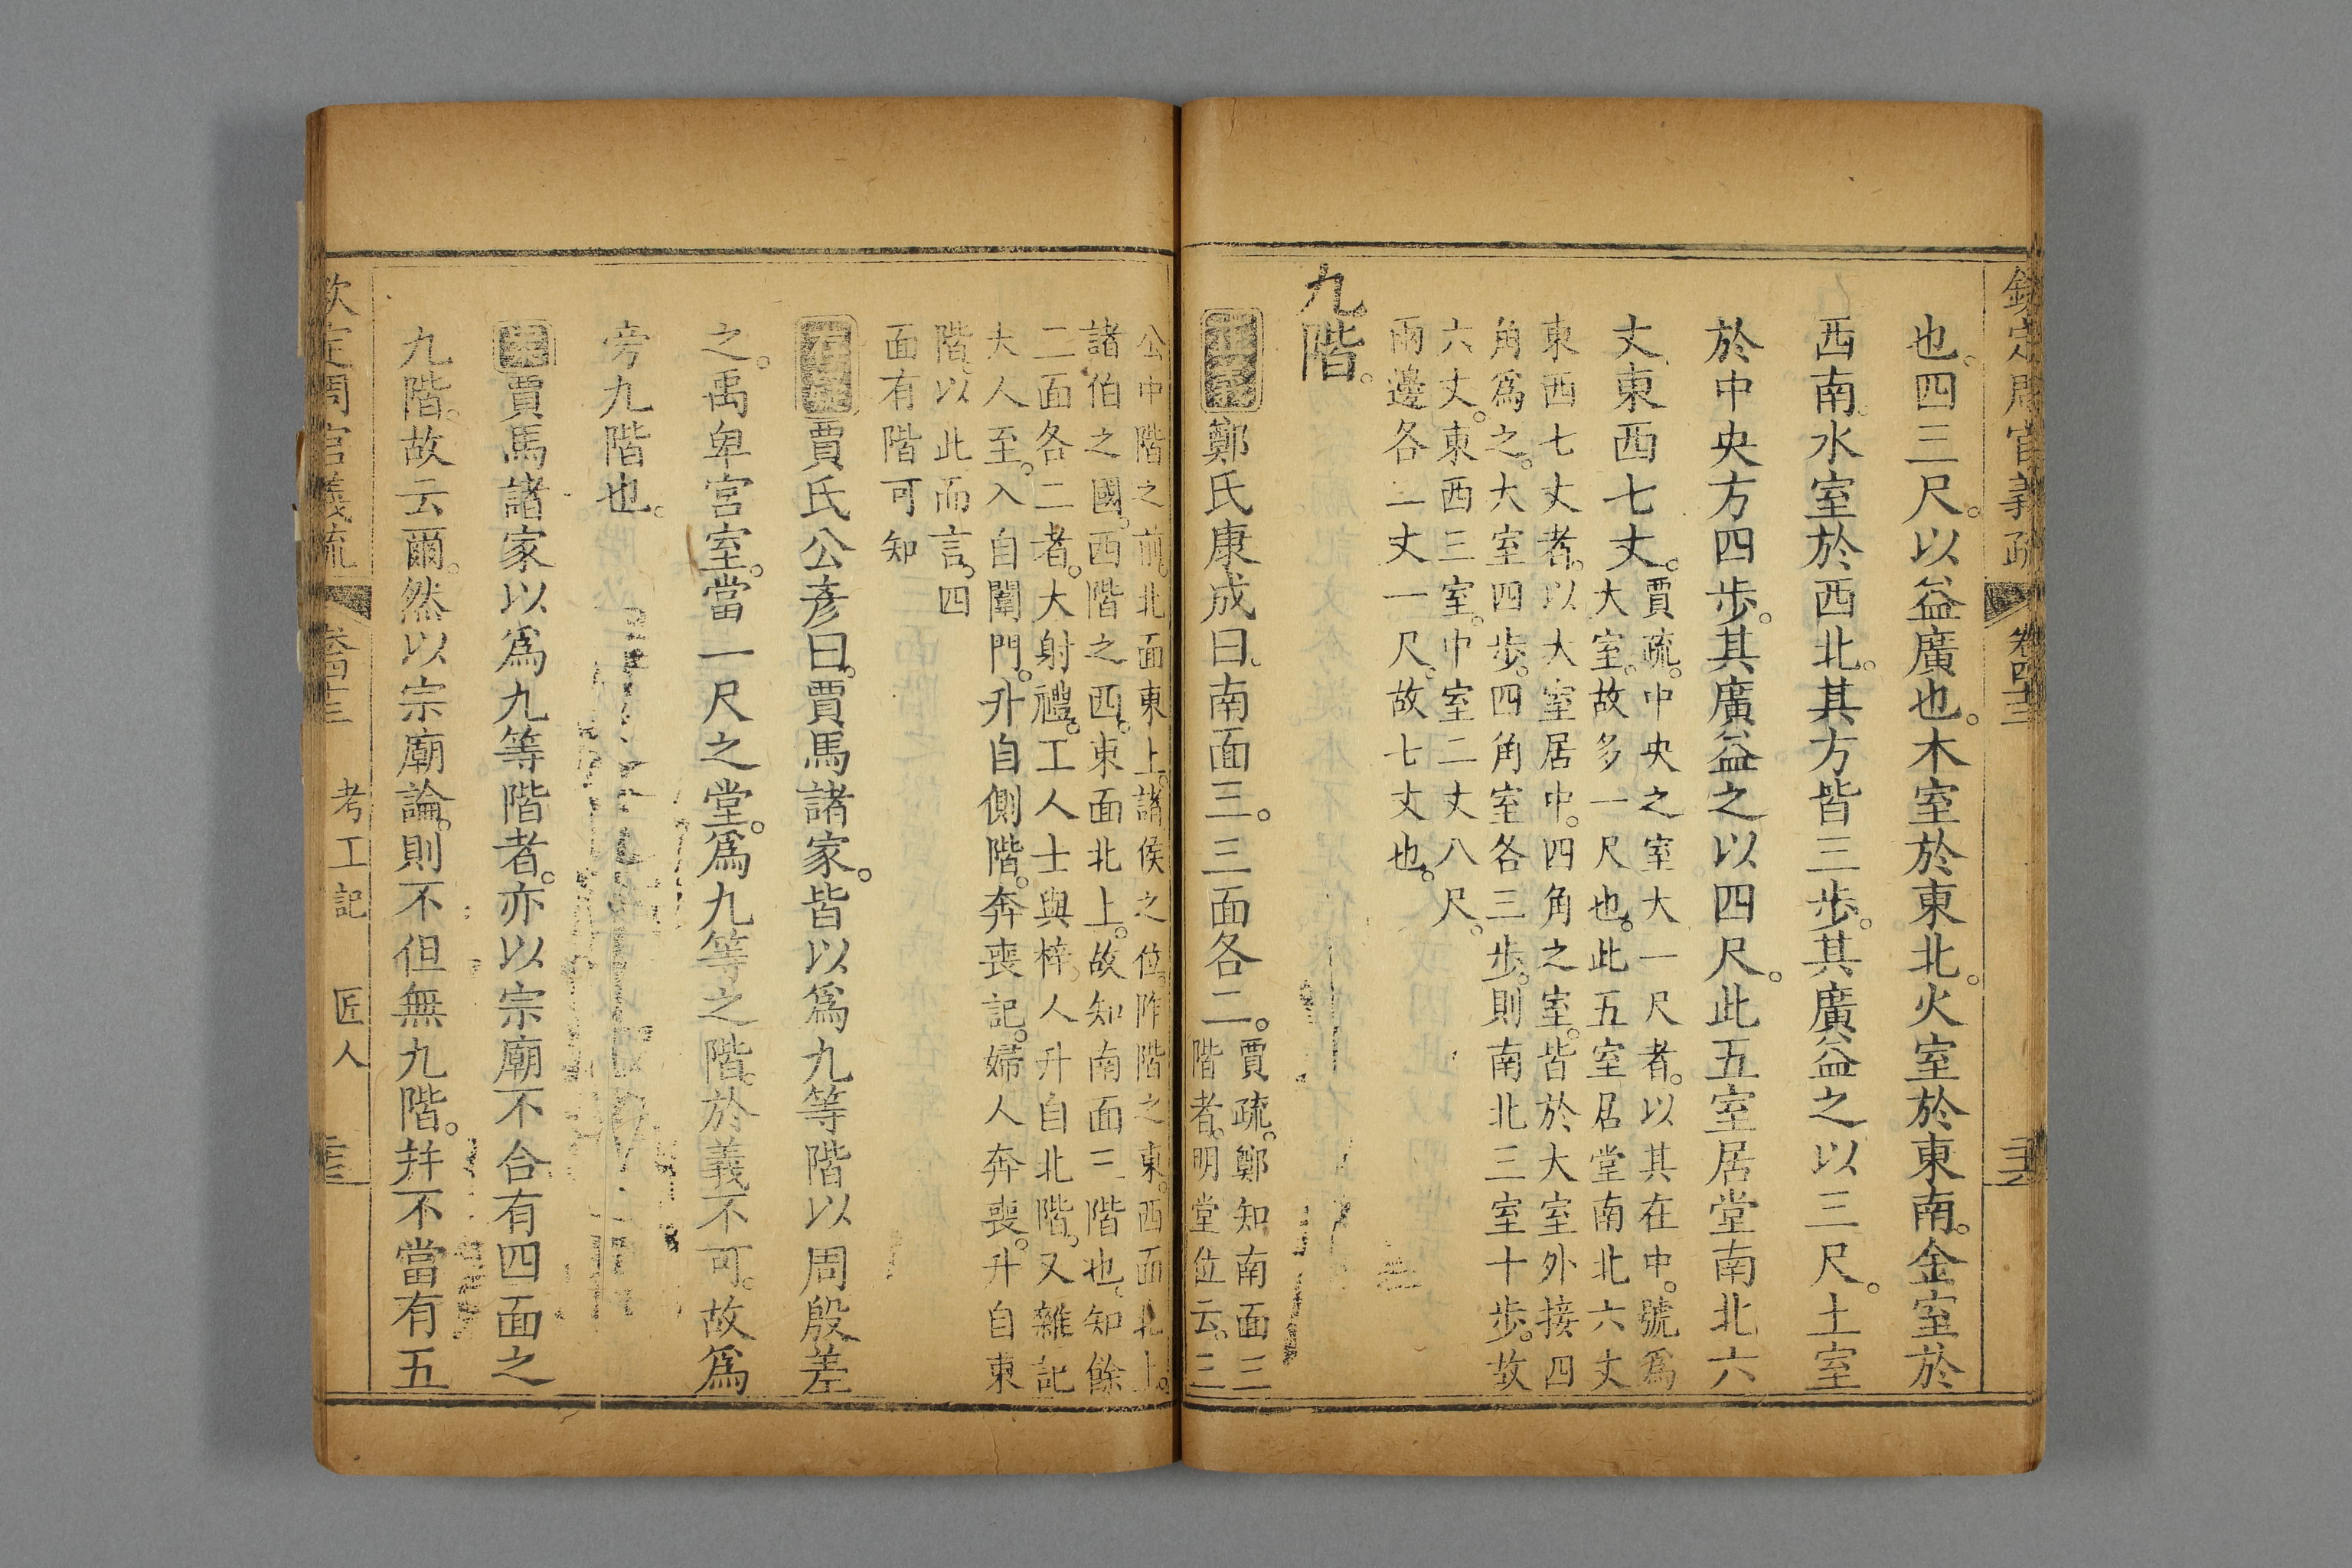 欽定周官義疏 卷四十三
也。四三尺。以益廣也。木室於東北。火室於東南。金室於
西南。水室於西北。其方皆三步。其廣益之以三尺。土室
於中央方四步。其廣益之以四尺。此五室居堂南北六
丈、東西七丈。
賈疏。中央之室大一尺者。以其在中。號爲
大室。故多一尺也。此五室居堂南北六丈
東西七丈者。以大室居中。四角之室。皆於大室外接四
角爲之。大室四步。四角室各三步。則南北三室十步。故
六丈。東西三室。中室二丈八尺。
兩邊各二丈一尺。故七丈也。
九階。
鄭氏康成曰、南面三。三面各二。
賈疏。鄭知南面三
階者。明堂位云、三
公中階之前。北面東上。諸侯之位。阼階之東。西面北上。
諸伯之國。西階之西。東面北上。故知南面三階也、知餘
二面各二者。大射禮。工人士與梓人升自北階。又雜記
夫人至。入自闈門。升自側階。奔喪記。婦人奔喪。升自東
階、以此而言。四
面有階可知
賈氏公彥曰。賈馬諸家。皆以爲九等階以周殷差
之。禹卑宮室。當一尺之堂。爲九等之階。於義不可。故爲
旁九階也。
賈馬諸家以爲九等階者。亦以宗廟不合有四面之
九階。故云爾。然以宗廟論。則不但無九階。并不當有五
欽定周官義疏 卷四十三 考工記 匠人